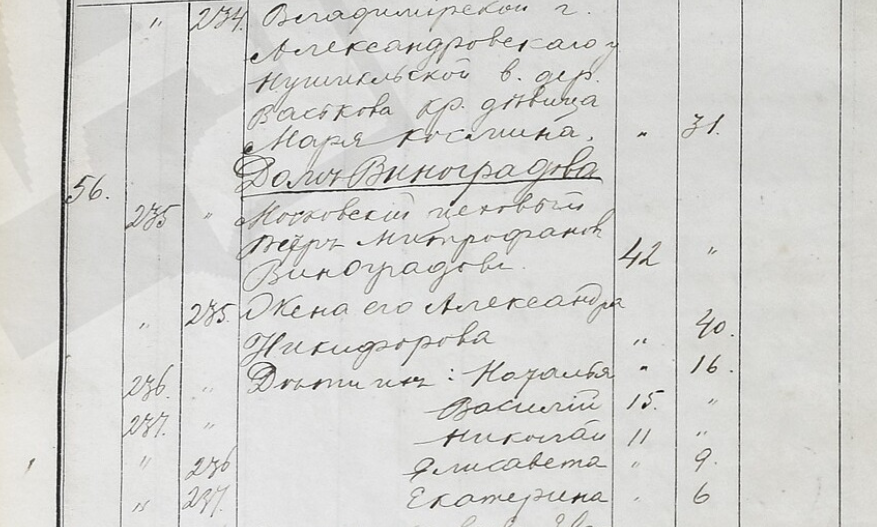 " 234. Владимірской г.
Александровскаго у
в. дер.
Васькова кр. дѣвица
Марія Космина. " 31.
56. Домъ Виноградова
235 " Московскій цеховый
Петръ Митрофановъ
Виноградовъ. 42 "
" 235. Жена его Александра
Никифорова " 40.
236. " Дѣти ихъ: Наталья " 16.
Василій 15. "
237. " Николай 11 "
" 236 Елисавета " 9.
" 237. Екатерина " 6